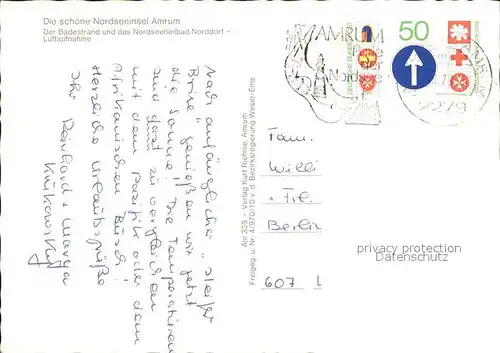 Die schöne Nordseeinsel Amrum
Der Badestrand und das Nordseeheilbad Norddorf -
Luftaufnahme
Nach anfänglicher „steifer
Brise" genießen wir jetzt
die Sonne! Die Temperaturen
sind jetzt zu vergleichen
mit dem Pazifik oder dem
Afrikanischen Busch!
Herzliche Urlaubsgrüße
Ihr Reinhard + Marga
Am 339 - Verlag Kurt Riehnie, Amrum
Freigeg. u. Nr. 4/970/10 v. d. Bezirksregierung Weser-Ems
AMRUM
Nordsee
50
DEUTSCHE BUNDESPOST
2279
Fam.
Willi
+ Frl.
Berlin
607 L
privacy protection
Datenschutz